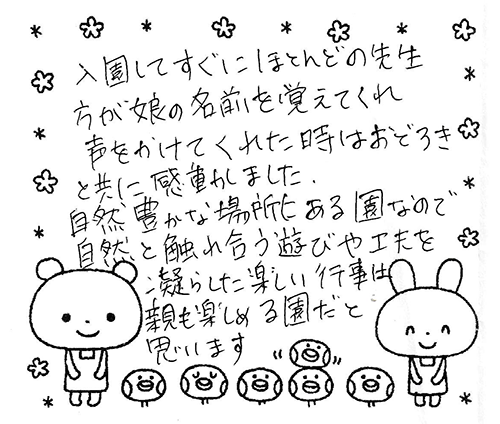 入園してすぐにほとんどの先生
方が娘の名前を覚えてくれ
声をかけてくれた時はおどろき
と共に感動しました.
自然豊かな場所にある園なので
自然と触れ合う遊びや工夫を
凝らした楽しい行事は
親も楽しめる園だと
思います